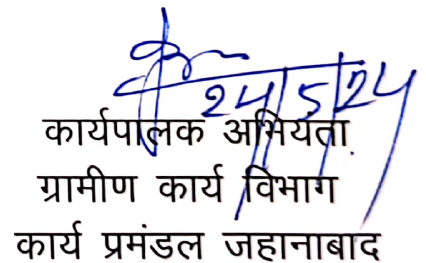 24/5/24
कार्यपालक अभियंता
ग्रामीण कार्य विभाग
कार्य प्रमंडल जहानाबाद